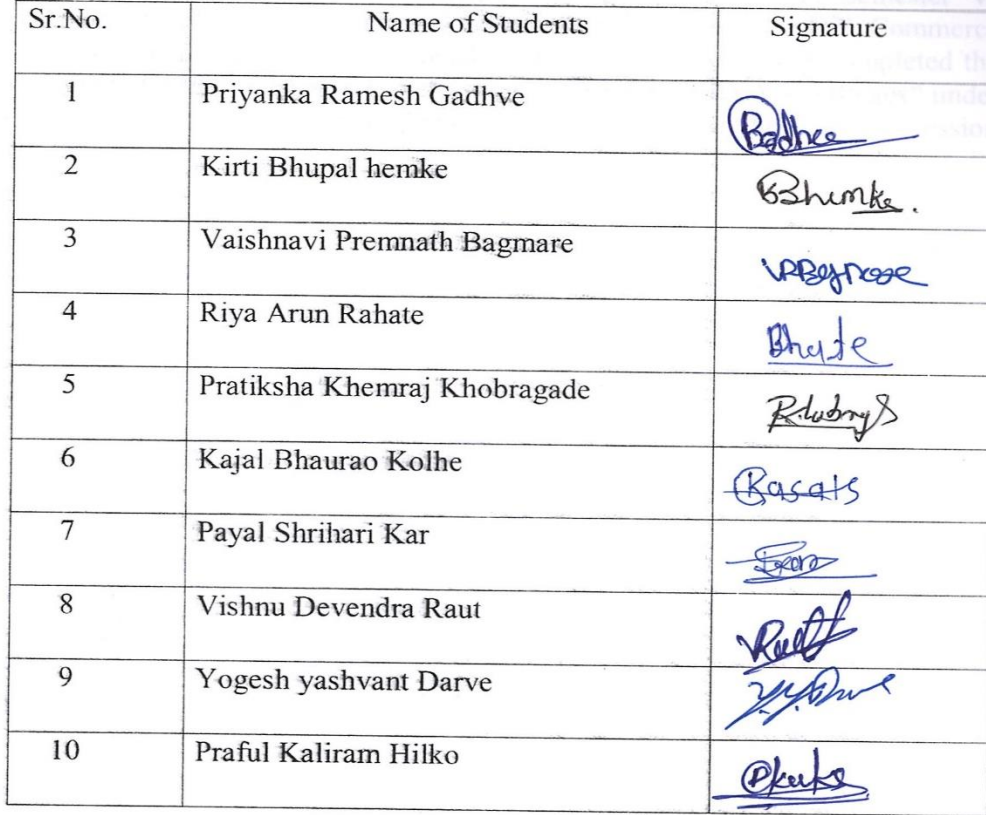 Sr.No. Name of Students Signature
1 Priyanka Ramesh Gadhve
2 Kirti Bhupal hemke
3 Vaishnavi Premnath Bagmare
4 Riya Arun Rahate
5 Pratiksha Khemraj Khobragade
6 Kajal Bhaurao Kolhe
7 Payal Shrihari Kar
8 Vishnu Devendra Raut
9 Yogesh yashvant Darve
10 Praful Kaliram Hilko